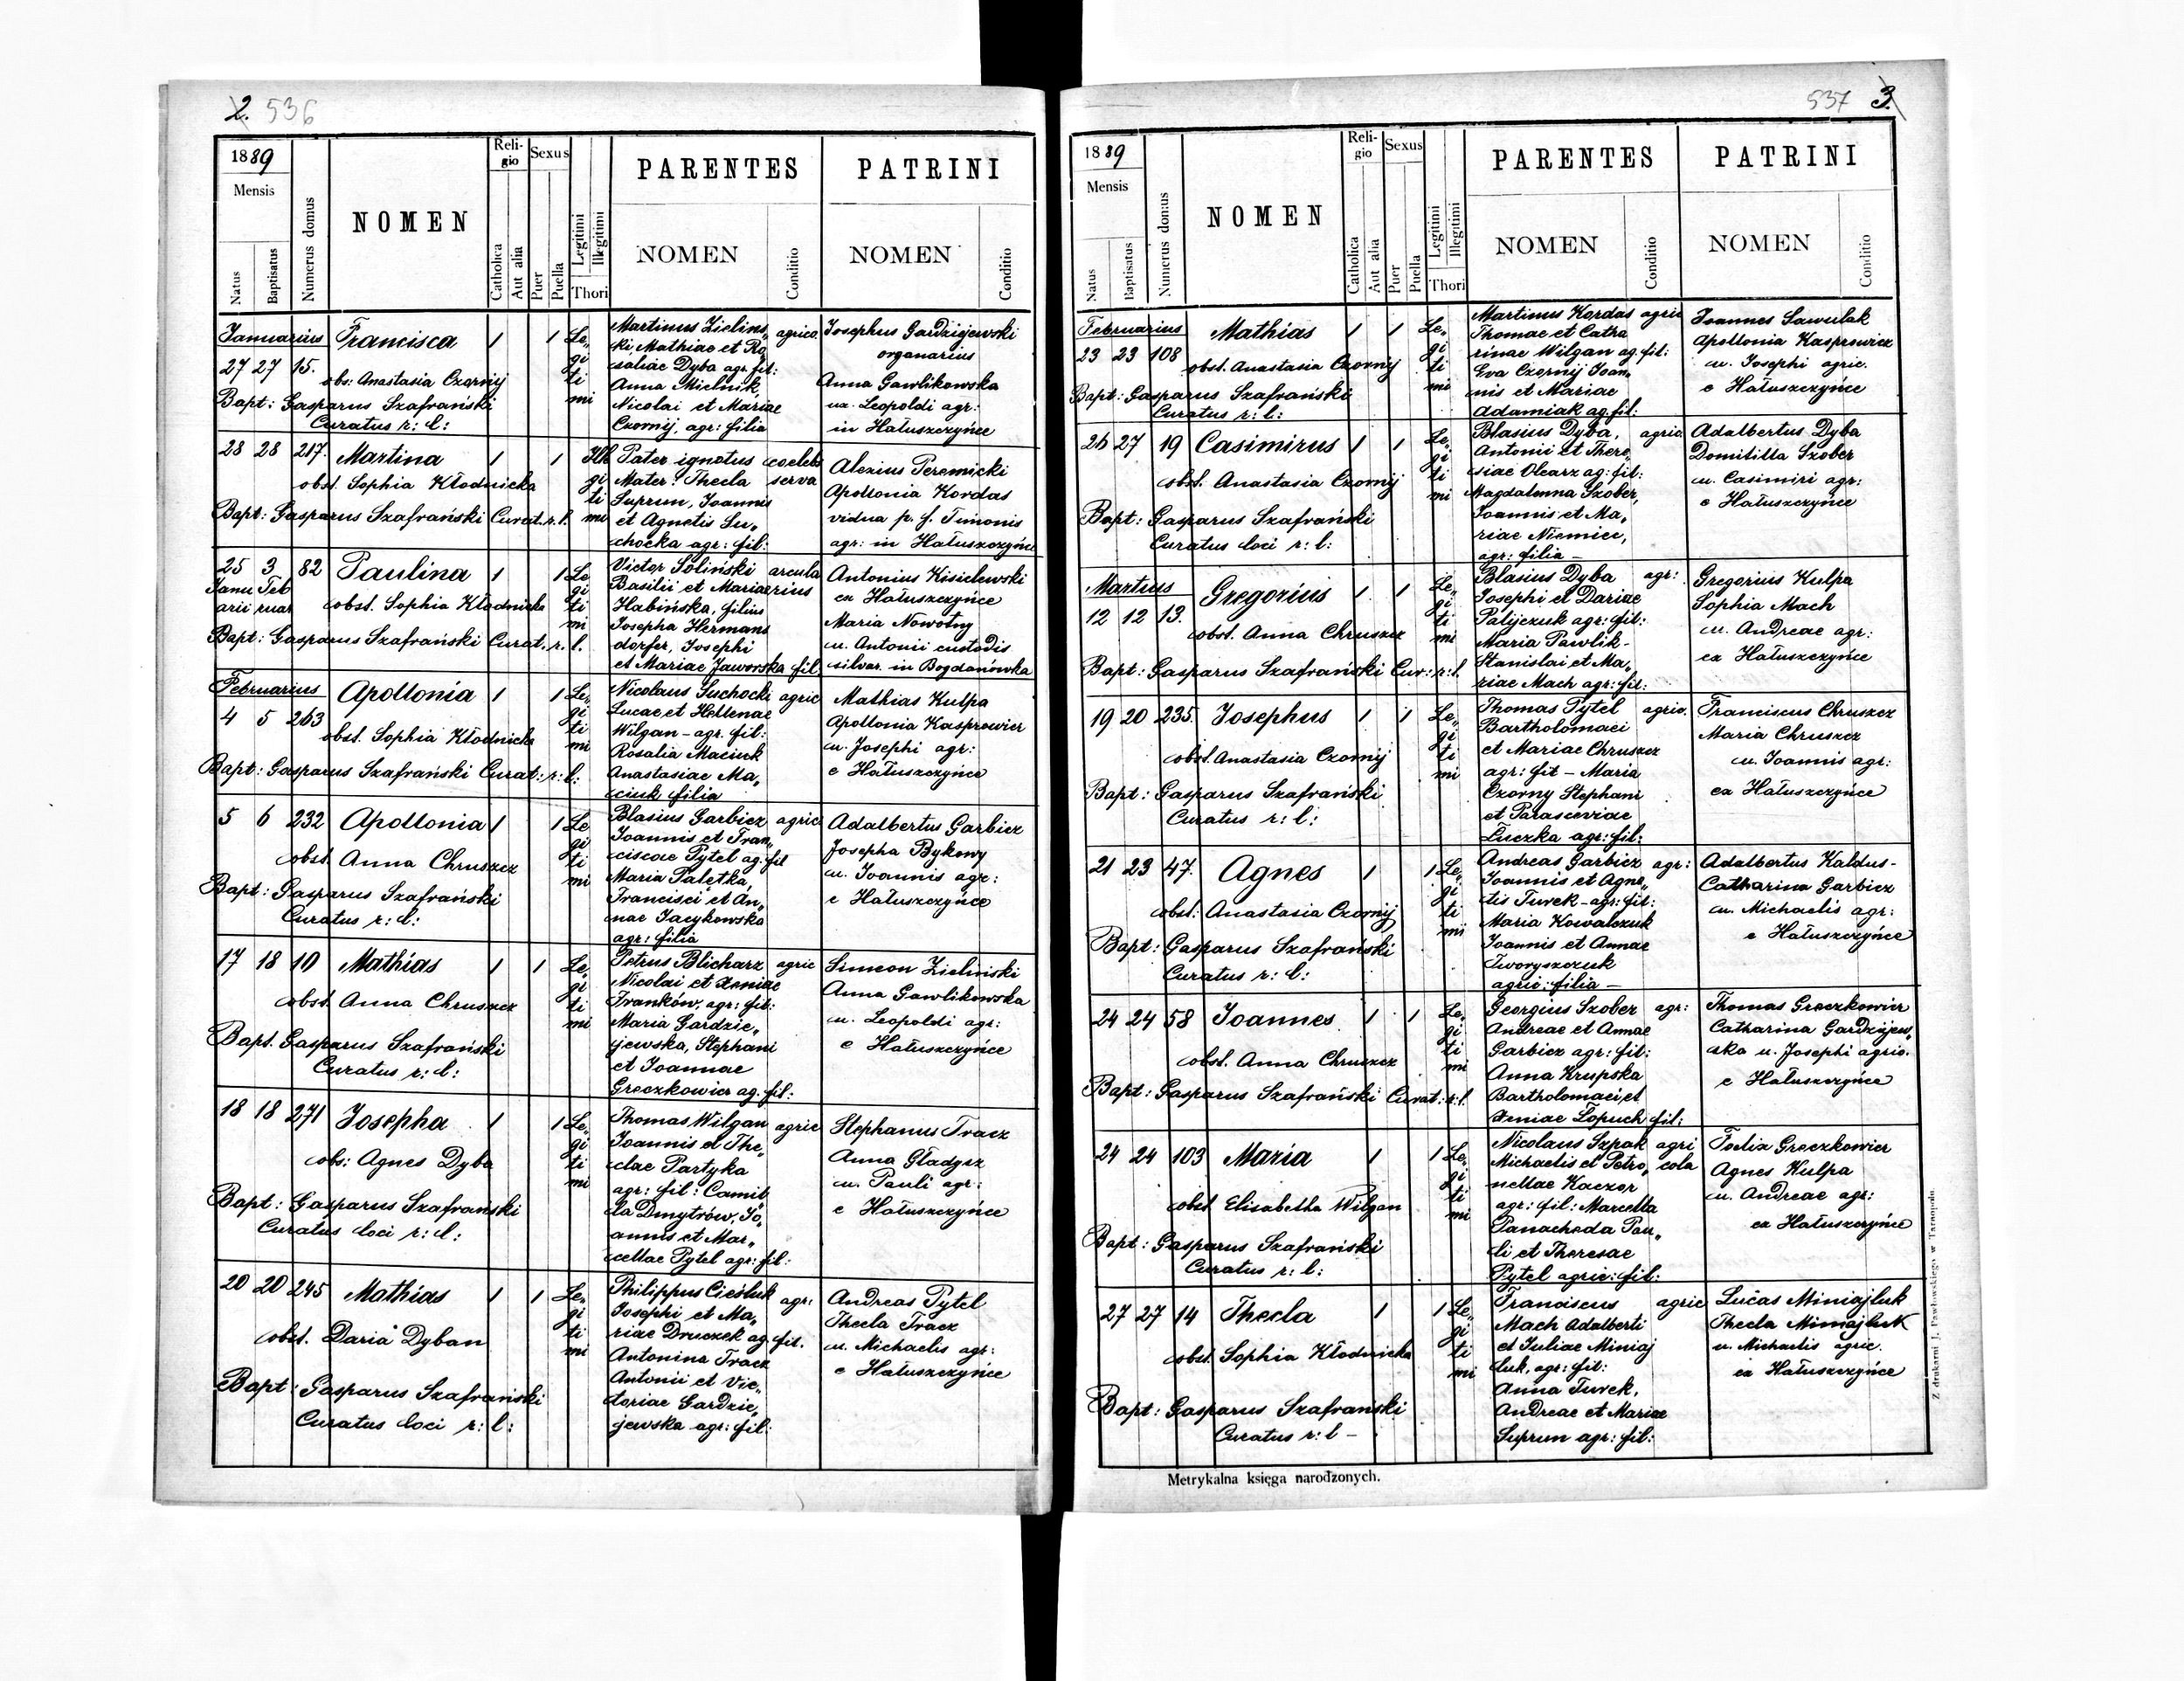 2. 536
1889
Mensis
Natus
Baptisatus
Numerus domus
NOMEN
Religio
Catholica
Aut alia
Sexus
Puer
Puella
Legitimi
Illegitimi
Thori
PARENTES
NOMEN
Conditio
PATRINI
NOMEN
Conditio
Januarius
27 27 15. Francisca 1 1 Legitimi
obs: Anastasia Czornij
Bapt: Gasparus Szafrański
Curatus r: l:
Martinus Zielins„ agric.
ki, Mathiae et Ro„
saliae Dyba agr. fil:
Anna Mielnik,
Nicolai et Mariae
Czornij, agr: filia
Josephus Gardzijewski
organarius
Anna Gawlikowska
ux. Leopoldi agr:
in Hałuszczyńce
28 28 217. Martina 1 1 Illegitimi
obst. Sophia Kłodnicka
Bapt: Gasparus Szafrański Curat. r. l.
Pater ignotus coelebs
Mater: Thecla serva
Suprun, Joannis
et Agnetis Su„
chocka agr: fil:
Alexius Peremicki
Apollonia Kordas
vidua p. f. Timonis
agr: in Hałuszczyńce
25 3 82 Paulina 1 1 Legitimi
Janu Feb
arii ruar
obst. Sophia Kłodnicka
Bapt: Gasparus Szafrański Curat. r. l.
Victor Soliński arcula
Basilii et Mariae rius
Habińska, filius
Josepha Hermans
dorfer, Josephi
et Mariae Jaworska fil.
Antonius Kisielewski
ex Hałuszczyńce
Maria Nowotny
u. Antonii custodis
silvar. in Bogdanówka
Februarius
4 5 263 Apollonia 1 1 Legitimi
obst. Sophia Kłodnicka
Bapt: Gasparus Szafrański Curat: r: l:
Nicolaus Suchocki agric
Lucae et Hellenae
Wilgan - agr. fil:
Rosalia Maciuk
Anastasiae Ma„
ciuk filia
Mathias Kulpa
Apollonia Kasprowicz
u. Josephi agr:
e Hałuszczyńce
5 6 232 Apollonia 1 1 Legitimi
obst. Anna Chruszcz
Bapt: Gasparus Szafrański
Curatus r: l:
Blasius Garbicz agric
Joannis et Fran„
ciscae Pytel ag: fil
Maria Paletka,
Francisci et An„
nae Jacykowska
agr: filia
Adalbertus Garbicz
Josepha Bykowy
u. Joannis agr:
e Hałuszczyńce
17 18 10 Mathias 1 1 Legitimi
obst. Anna Chruszcz
Bapt. Gasparus Szafrański
Curatus r: l:
Petrus Blicharz agric
Nicolai et Xeniae
Franków, agr: fil:
Maria Gardzie„
jewska, Stephani
et Joannae
Greczkowicz ag. fil:
Simeon Zieliński
Anna Gawlikowska
u. Leopoldi agr:
e Hałuszczyńce
18 18 271 Josepha 1 1 Legitimi
obs: Agnes Dyba
Bapt: Gasparus Szafrański
Curatus loci r: l:
Thomas Wilgan agric
Joannis et The„
clae Partyka
agr: fil: Camil„
la Dmytrów, Jo„
annis et Mar„
cellae Pytel agr: fil:
Stephanus Tracz
Anna Gładysz
u. Pauli agr:
e Hałuszczyńce
20 20 245 Mathias 1 1 Legitimi
obst. Daria Dyban
Bapt: Gasparus Szafrański
Curatus loci r: l:
Philippus Cieśluk agr:
Josephi et Ma„
riae Druczek ag. fil.
Antonina Tracz
Antonii et Vic„
toriae Gardzie„
jewska agr: fil:
Andreas Pytel
Thecla Tracz
u. Michaelis agr:
e Hałuszczyńce
537 3.
1889
Mensis
Natus
Baptisatus
Numerus domus
NOMEN
Religio
Catholica
Aut alia
Sexus
Puer
Puella
Legitimi
Illegitimi
Thori
PARENTES
NOMEN
Conditio
PATRINI
NOMEN
Conditio
Februarius
23 23 108 Mathias 1 1 Legitimi
obst. Anastasia Czornij
Bapt: Gasparus Szafrański
Curatus r: l:
Martinus Kordas agric
Thomae et Catha
rinae Wilgan ag. fil:
Eva Czornij Joan„
nis et Mariae
Adamiak ag. fil:
Joannes Sawulak
Apollonia Kasprowicz
u. Josephi agric.
e Hałuszczyńce
26 27 19 Casimirus 1 1 Legitimi
obst. Anastasia Czornij
Bapt: Gasparus Szafrański
Curatus loci r: l:
Blasius Dyba, agric
Antonii et There„
siae Olearz ag: fil:
Magdalenna Szober,
Joannis et Ma„
riae Niemiec,
agr: filia -
Adalbertus Dyba
Domitilla Szober
u. Casimiri agr:
e Hałuszczyńce
Martius
12 12 13. Gregorius 1 1 Legitimi
obst. Anna Chruszcz
Bapt: Gasparus Szafrański Cur: r: l.
Blasius Dyba agr:
Josephi et Dariae
Palijczuk agr: fil:
Maria Pawlik -
Stanislai et Ma„
riae Mach agr: fil:
Gregorius Kulpa
Sophia Mach
u. Andreae agr:
ex Hałuszczyńce
19 20 235. Josephus 1 1 Legitimi
obst. Anastasia Czornij
Bapt: Gasparus Szafrański
Curatus r: l:
Thomas Pytel agric.
Bartholomaei
et Mariae Chruszcz
agr: fil - Maria
Czorny Stephani
et Parasceviae
Łuczka agr: fil:
Franciscus Chruszcz
Maria Chruszcz
u. Joannis agr:
ex Hałuszczyńce
21 23 47. Agnes 1 1 Legitimi
obst: Anastasia Czornij
Bapt: Gasparus Szafrański
Curatus r: l:
Andreas Garbicz agr:
Joannis et Agne„
tis Turek - agr: fil:
Maria Kowalczuk
Joannis et Annae
Tworyszczuk
agric: filia -
Adalbertus Kaldus -
Catharina Garbicz
u. Michaelis agr:
e Hałuszczyńce
24 24 58 Joannes 1 1 Legitimi
obst. Anna Chruszcz
Bapt: Gasparus Szafrański Curat: r: l.
Georgius Szober agr:
Andreae et Annae
Garbicz agr: fil:
Anna Krupska
Bartholomaei et
Xeniae Łopuch fil:
Thomas Greczkowicz
Catharina Gardzijew„
ska u. Josephi agric.
e Hałuszczyńce
24 24 103 Maria 1 1 Legitimi
obst Elisabetha Wilgan
Bapt: Gasparus Szafrański
Curatus r: l:
Nicolaus Szpak agri
Michaelis et Petro„ cola
nellae Kaczor
agr: fil: Marcella
Panacheda Pau„
li et Theresae
Pytel agric: fil:
Foelix Greczkowicz
Agnes Kulpa
u. Andreae agr:
ex Hałuszczyńce
27 27 14 Thecla 1 1 Legitimi
obst. Sophia Kłodnicka
Bapt: Gasparus Szafrański
Curatus r: l -
Franciscus agric
Mach Adalberti
et Juliae Miniaj
luk, agr: fil:
Anna Turek,
Andreae et Mariae
Suprun agr: fil:
Lucas Miniajluk
Thecla Miniajluk
u. Michaelis agric.
ex Hałuszczyńce
Metrykalna księga narodzonych.
Z drukarni J. Pawłowskiego w Tarnopolu.